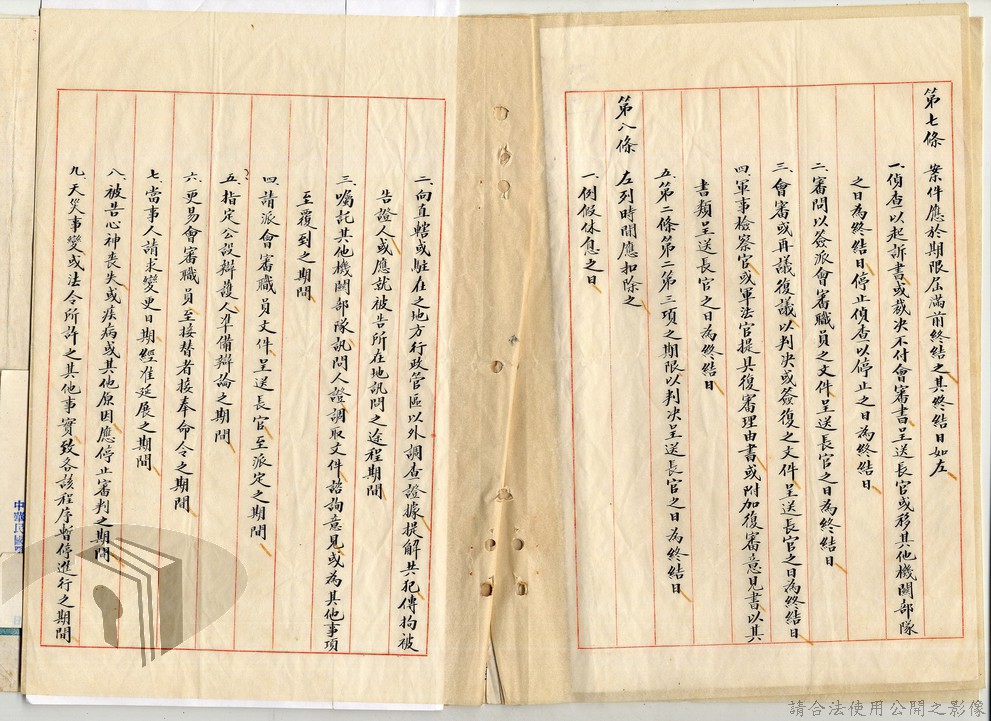 第七條　案件應於期限屆滿前終結之其終結日如左
一、偵查以起訴書或裁決不付會審書呈送長官或移其他機關部隊
之日為終結日停止偵查以停止之日為終結日
二、審問以簽派會審職員之文件呈送長官之日為終結日
三、會審或再議復議以判決或簽復之文件呈送長官之日為終結日
四、軍事檢察官或軍法官提具復審理由書或附加復審意見書以其
書類呈送長官之日為終結日
五、第二條第二第三項之期限以判決呈送長官之日為終結日
第八條　左列時間應扣除之
一、例假休息之日
二、向直轄或駐在之地方行政管區以外調查證據提解共犯傳拘被
告證人或應就被告所在地訊問之途程期間
三、囑託其他機關部隊訊問人證調取文件諮詢意見或為其他事項
至覆到之期間
四、請派會審職員文件呈送長官至派定之期間
五、指定公設辯護人準備辯論之期間
六、更易會審職員至接替者接奉命令之期間
七、當事人請求變更日期經准延展之期間
八、被告心神喪失或疾病或其他原因應停止審判之期間
九、天災事變或法令所許之其他事實致各該程序暫停進行之期間
中華民國
請合法使用公開之影像